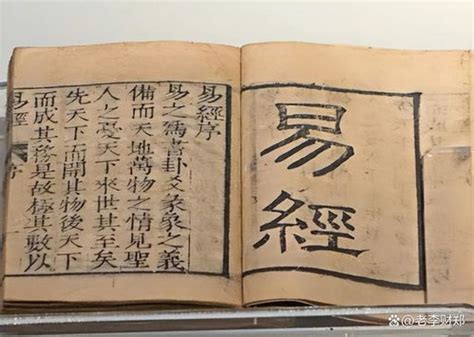 易經
易經序
易之爲書卦爻彖象之義
備而天地萬物之情見聖
人之憂天下來世其至矣
先天下而開其物後天下
而成其務是故極其數以
易經 序
@老李财郑